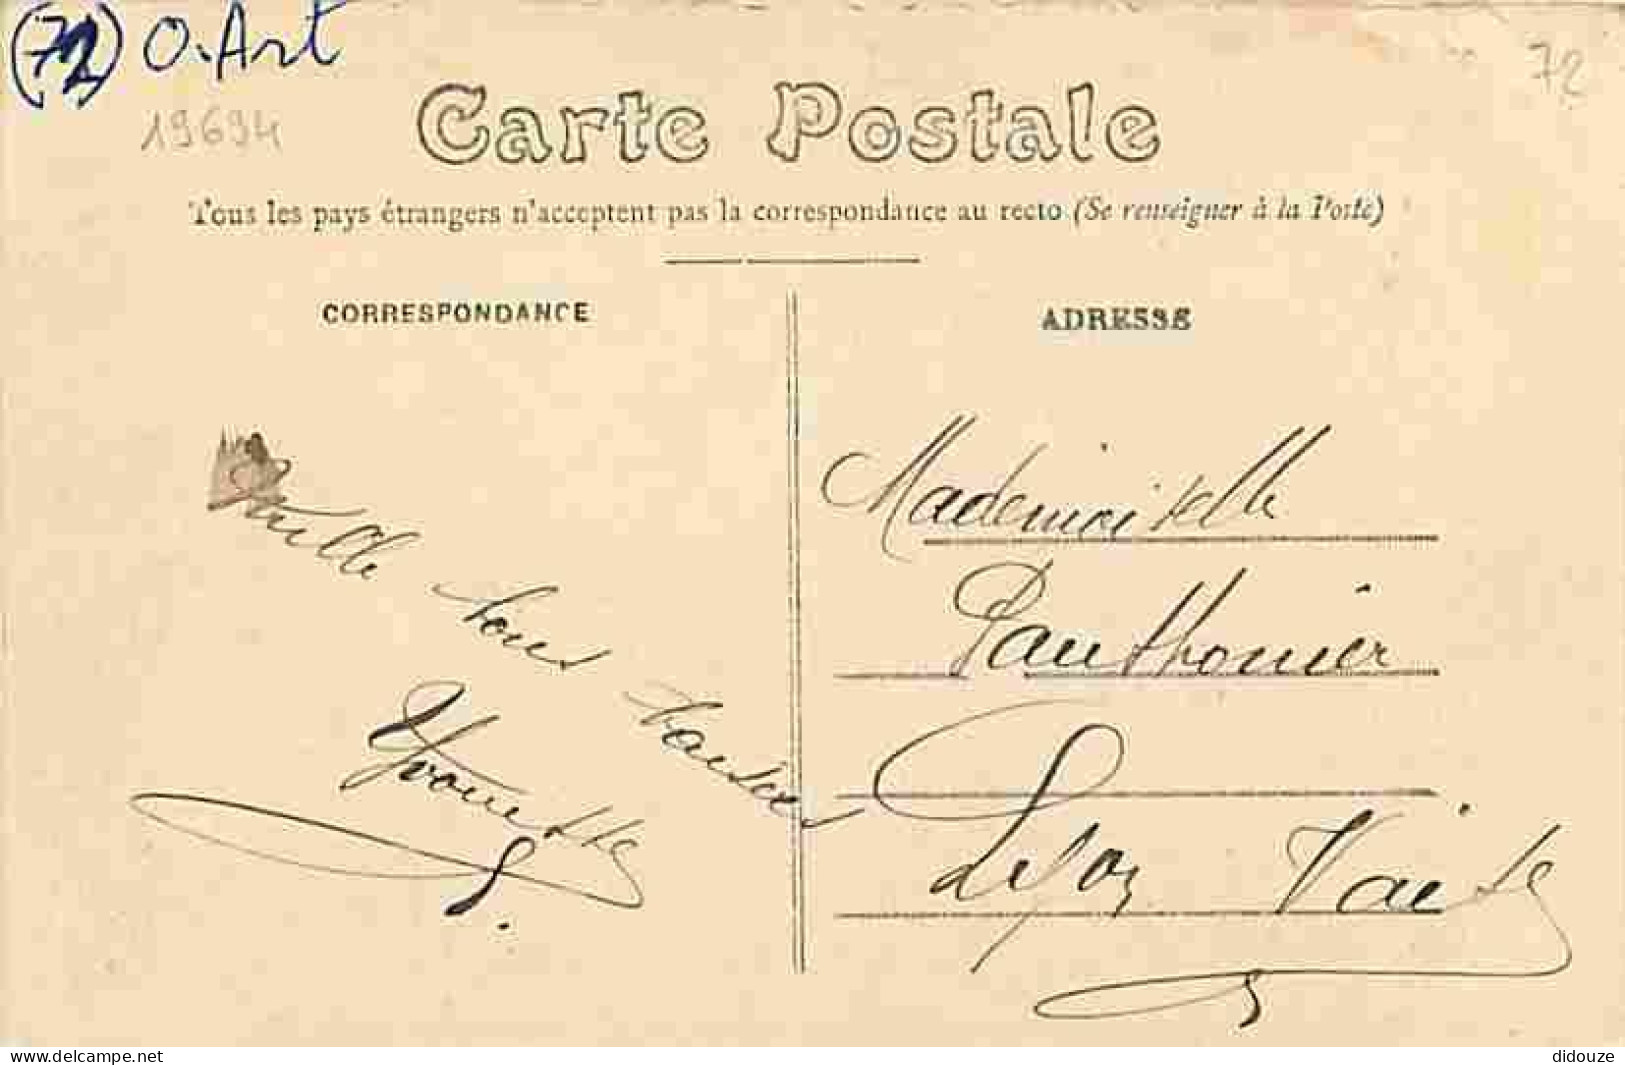 (72) O. Art
19694
72
Carte Postale
Tous les pays étrangers n'acceptent pas la correspondance au recto (Se renseigner à la Poste)
CORRESPONDANCE
ADRESSE
Mille bons baisers
Yvonette
Mademoiselle
Panthonier
delcampe.net
didouze